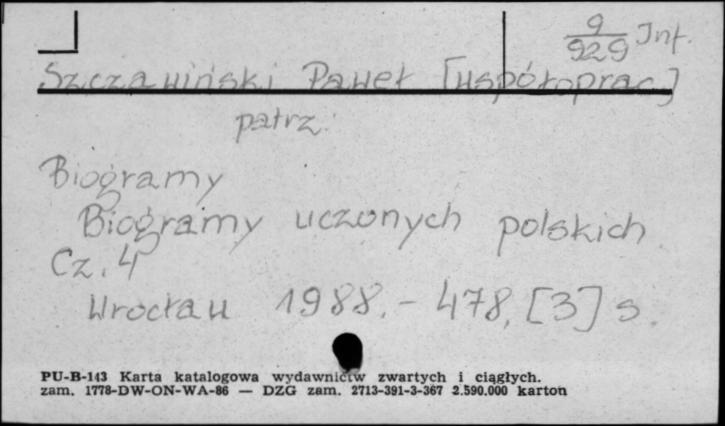 9
929 Inf.
Szczawiński Paweł [współoprac]
patrz:
Biogramy
Biogramy uczonych polskich.
Cz. 4
Wrocław 1988. - 478, [3] s.
PU-B-143 Karta katalogowa wydawnictw zwartych i ciągłych.
zam. 1778-DW-ON-WA-86 — DZG zam. 2713-391-3-367 2.590.000 karton